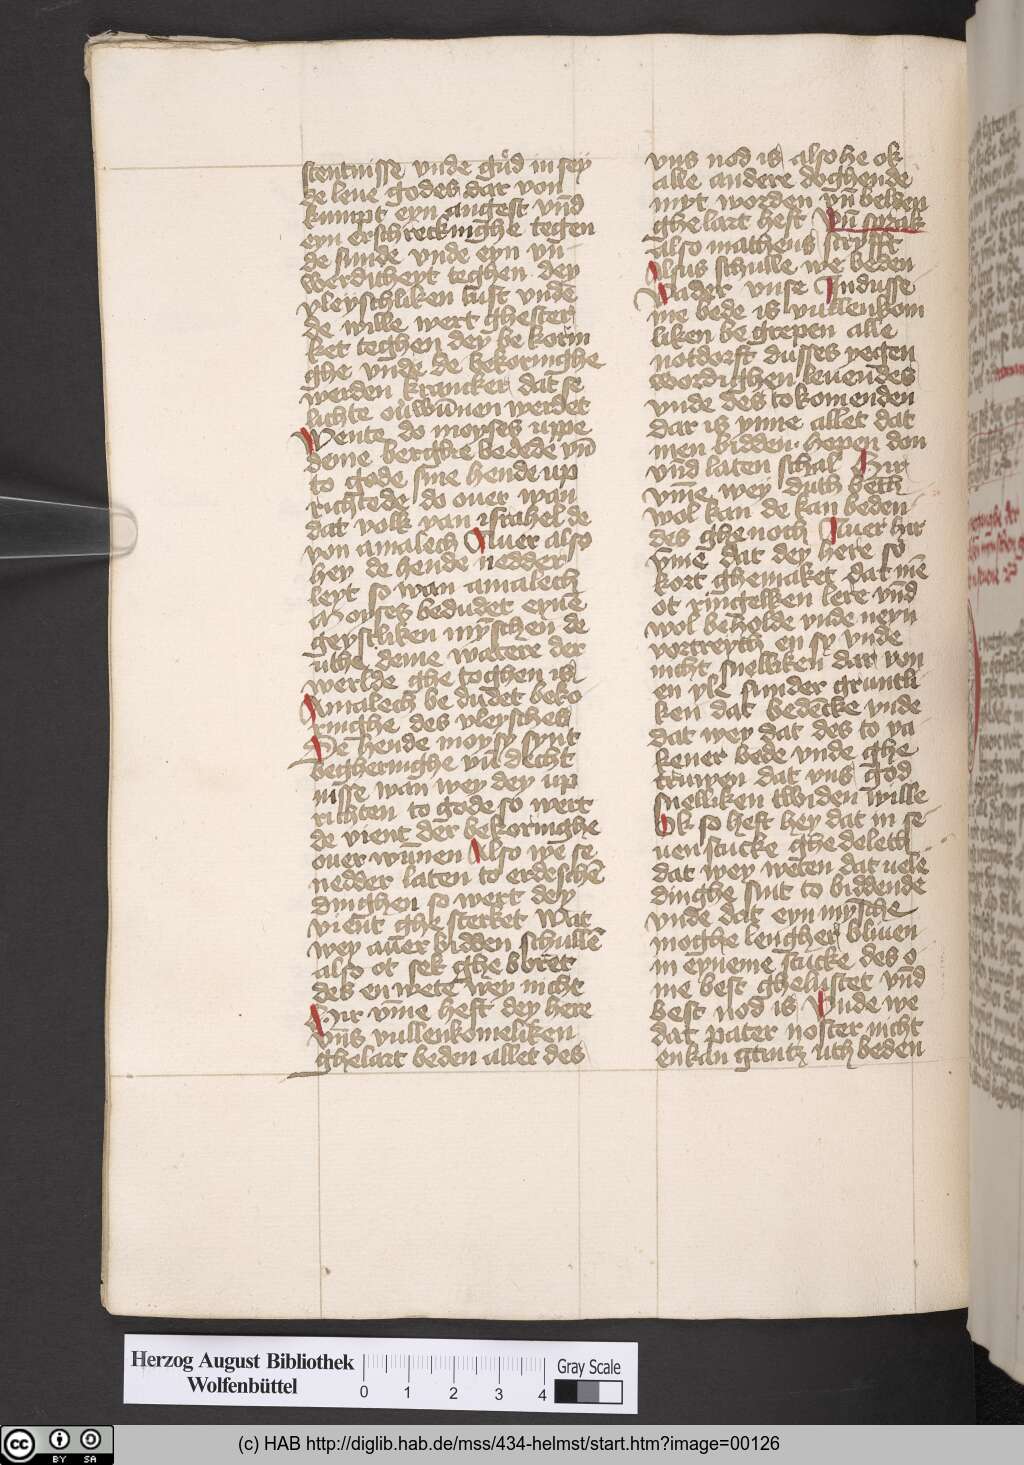 stentnisse vnde gud in sey
de leue godes dar von
kumpt eyn angest vnd
eyn erschreckinghe tegen
de sunde vnde eyn vn
werdicheyt teghen dey
vleyschliken lust vnde
de wille wert ghester
ket teghen dey be korin
ghe vnde de bekoringhe
werden krancker dat se
lichte ouwunen werdet
Wente do moyses uppe
deme berghe bedede vn̄
to gode sine hende up
richtede do ouer wan
dat volk van israhel de
von amalech Auer also
hey de hende nedder
leyt so wan amalech
Moyses bedudet eynē
geystliken mȳschen de
uthe deme watere der
werlde ghe toghen is
Amalech be dudet beko
ringhe des vleysches
De hende moysy synt
begheringhe vn̄ decht
nisse wan wey dey up
richten to gode so wert
de vient der bekoringhe
ouer wūnen Also we se
nedder laten to erdeschē
dinghen so wert dey
vient ghe sterket Wat
wey auer bidden schullē
also ot sek ghe boret
des en wete wey nicht
Hir vm̄e heft dey here
vns vullenkomeliken
ghelart beden allet des
vns nod is also he ok
alle andere doghende
myt worden vn̄ belden
ghelart heft Vn̄ sprak
also matheus scryfft
Alsus schulle we beden
Vader vnse In dusse
me bede is vullenkom
liken be grepen alle
notdorft dusses yegen
wordighen leuendes
vnde des tokomenden
dar is ynne allet dat
men bidden hepen don
vnd laten schal Hir
vm̄e wey duth beth
wol kan de kan beden
des ghenoch Auer hir
vm̄e dat dey here so
kort ghemaket dat mē
ot ringelken lere vnd
wol beholde vnde neyn
vortreyth en sy vnde
nicht snelliken dar von
en yle sunder gruntli
ken dat bedecke vnde
dat wey dat des to va
kener bede vnde ghe
truwen dat vns god
snelliken twiden wille
Ok so heft hey dat in se
uen stucke ghedeleth
dat wey weten dat uele
dinghe sint to biddende
vnde dat eyn mȳsche
moghe lengher bliuen
in eyneme stucke des o
me best ghelustet vnd
best nod is Vnde we
dat pater noster nicht
enkan gantz uth beden
Herzog August Bibliothek
Wolfenbüttel
0 1 2 3 4
Gray Scale
cc BY SA
(c) HAB http://diglib.hab.de/mss/434-helmst/start.htm?image=00126